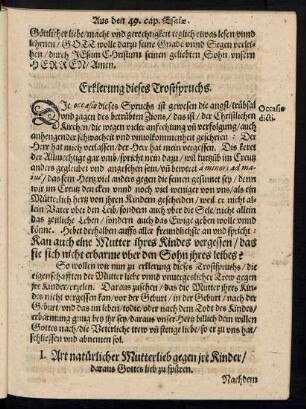 Aus den 49. cap. Esaiæ.
Göttlicher liebe/macht vnd gerechtigkeit teglich etwas lesen vnnd
lehrnen/ GOTT wolle darzu seine Gnade vnnd Segen verlei-
hen/durch JEsum CHristum seinen geliebten Sohn vnsern
HERREN/ Amen.
Erklerung dieses Trostspruchs.
Die occasio dieses Spruchs ist gewesen die angst/trübsal
vnd zagen des betrübten Zions/ das ist/ der Christlichen
Kirchen/ die wegen vieler anfechtung vñ verfolgung/ auch
anhengender schwacheit vnd vnvolkommenheit geschrien: Der
Herr hat mich verlassen/der Herr hat mein vergessen. Des keret
der Allmechtige gar vmb/spricht nein dazu/
Occasio
dicti.
anders
das sein Herz viel anders gegen die seinen gesinnet sey/ denn
wir im Creutz dencken vnnd noch viel weniger von vns/ als ein
mütterlich herz von ihren Kindern gescheiden/ weil er nicht al-
lein Vater vber den Leib/sondern auch vber die Sele/nicht allein
das zeitliche Leben / sondern auch das Ewige geben wolle vnnd
könne. Hebet derhalben auffs aller freundlichste an vnd spricht:
Kan auch eine Mutter ihres Kindes vergessen/ das
sie sich nicht erbarme vber den Sohn ihres leibes?
So wollen wir nun zu erklerung dieses Trostspruchs/ die
eigenschafften der Mutter liebe vnnd vnvergeslicher Trew gegen
jre Kinder/ erzelen. Daraus zusehen/ das die Mutter ihres Kin-
des nicht vergessen kan/ vor der Geburt/ in der Geburt/ nach der
Geburt/ vnd das im leben/ todte/ oder nach dem Todt des Kindes/
erbarmung gnug bey ihr sey: daraus vnser Hertz billich dem willen
Gottes nach/ die Veterliche trew vñ stetige liebe/ so er zu vns hat/
schliessen vnd abnemen sol.
I. Art natürlicher Mutterlieb gegen jre Kinder/
daraus Gottes lieb zu spüren.
Nachdem